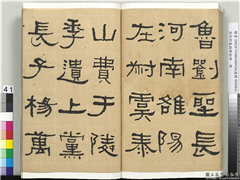 魯劉聖長
河南雒陽
左尉虞泰
山費于陵
季遺上黨
長子楊萬
41